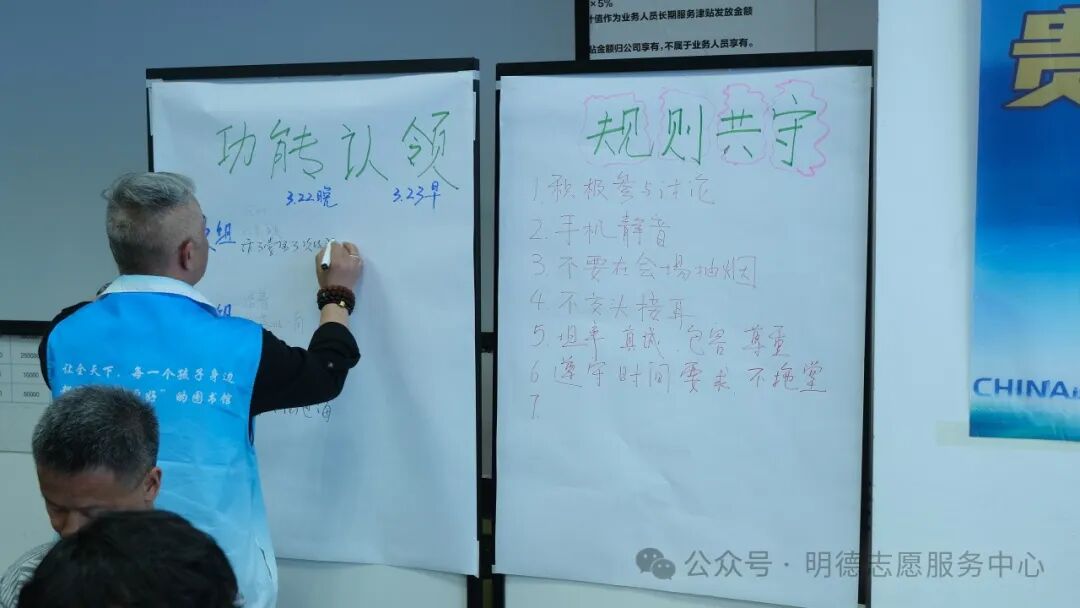 ×5%
值作为业务人员长期服务津贴发放金额
贴金额归公司享有，不属于业务人员享有。
贵
功能认领
3.22晚 3.23早
组
组
规则共守
1. 积极参与讨论
2. 手机静音
3. 不要在会场抽烟
4. 不交头接耳
5. 坦率 真诚 包容 尊重
6 遵守时间要求 不拖堂
7.
让全天下，每一个孩子身边
的图书馆
CHINA
公众号 · 明德志愿服务中心